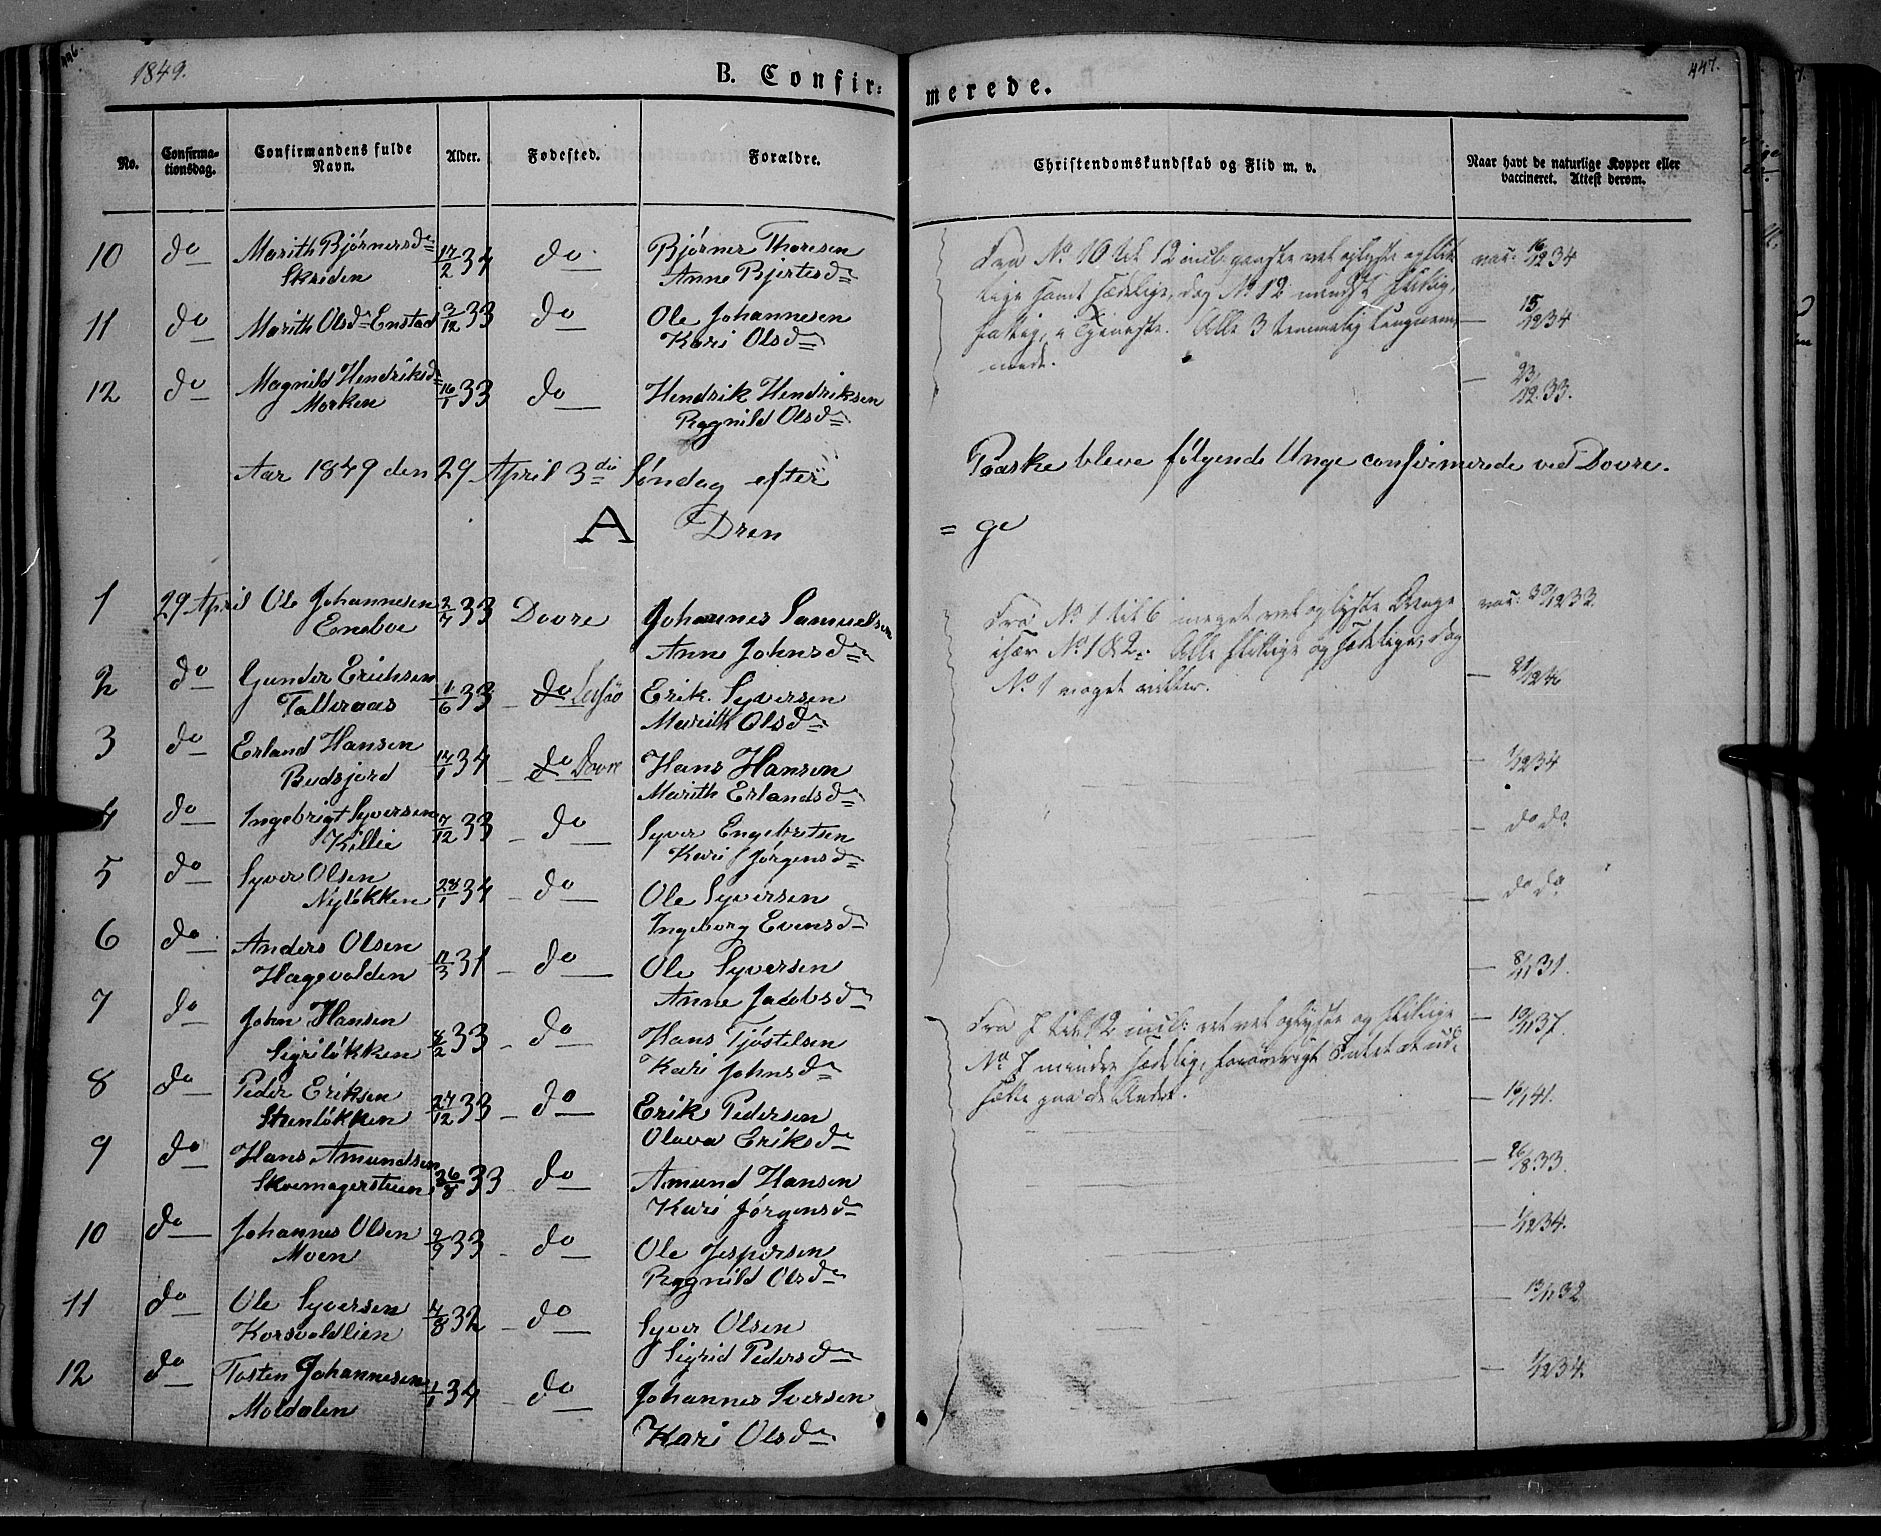 1849.
B. Confir-
merede.
447.
No.
Confirma-
tionsdag.
Confirmandens fulde
Navn.
Alder.
Fødested.
Forældre.
Christendomskundskab og Flid m. v.
Naar havt de naturlige Kopper eller
vaccineret. Attest derom.
10 do Marith Bjørnersd 17/2 34 do Bjørner Thoresen
Skriden Anne Bjertesd
11 do Marith Olsd Enstad 3/12 33 do Ole Johannesen
Kari Olsd
12 do Magnild Hendriksd 16/1 33 do Hendrik Hendriksen
Morken Ragnild Olsd
Fra No 10 til 12 incl: ganske vel oplyste og flit-
lige samt sædelige, dog No 12 mindst flittig,
fattig, i Tjeneste. Alle 3 temmelig
vac: 16/12 34
— 15/12 34
— 23/12 33.
Aar 1849 den 29 April 3die Søndag efter
Paaske bleve følgende Unge confirmerede ved Dovre.
A Dren
= ge
1 29 April Ole Johannesen 2/7 33 Dovre Johannes Samuelsen
Eneboe Anne Johnsd
2 do Gunder Erichsen 1/6 33 do Lesjø Erik Syversen
Talleraas Marith Olsd
3 do Erland Hansen 14/1 34 do Dovre Hans Hansen
Budsjord Marith Erlandsd
4 do Ingebrigt Syversen 7/12 33 do Syver Engebretsen
Killie Kari Jørgensd
5 do Syver Olsen 28/1 34 do Ole Syversen
Nyløkken Ingeborg Evensd
6 do Anders Olsen 17/3 31 do Ole Syversen
Hagevolden Anne Jacobsd
7 do John Hansen 8/2 33 do Hans Tjøstelsen
Sigriløkken Kari Johnsd
8 do Peder Eriksen 27/12 33 do Erik Pedersen
Stenløkken Olava Eriksd
9 do Hans Amundsen 26/8 33 do Amund Hansen
Skomagerstuen Kari Jørgensd
10 do Johannes Olsen 2/9 33 do Ole Jespersen
Moen Ragnild Olsd
11 do Ole Syversen 7/8 32 do Syver Olsen
Korsvoldlien Sigrid Pedersd
12 do Tosten Johannesen 1/1 34 do Johannes Iversen
Moldalen Kari Olsd
Fra No 1 til 6 meget vel oplyste Drenge
især No 1 & 2. Alle flittige og sædelige, dog
No 1 noget
vac: 30/12 33
— 21/12
— 1/12 34
— do do
do do
— 8/11 31.
Fra 7 til 12 incl: ret vel oplyste og flittige
No 7 mindre sædelig, forøvrigt Intet at ud-
sætte paa de Andre.
— 19/11 37.
— 16/1 41.
— 26/8 33.
— 1/12 34.
— 13/11 32
— 1/12 34.